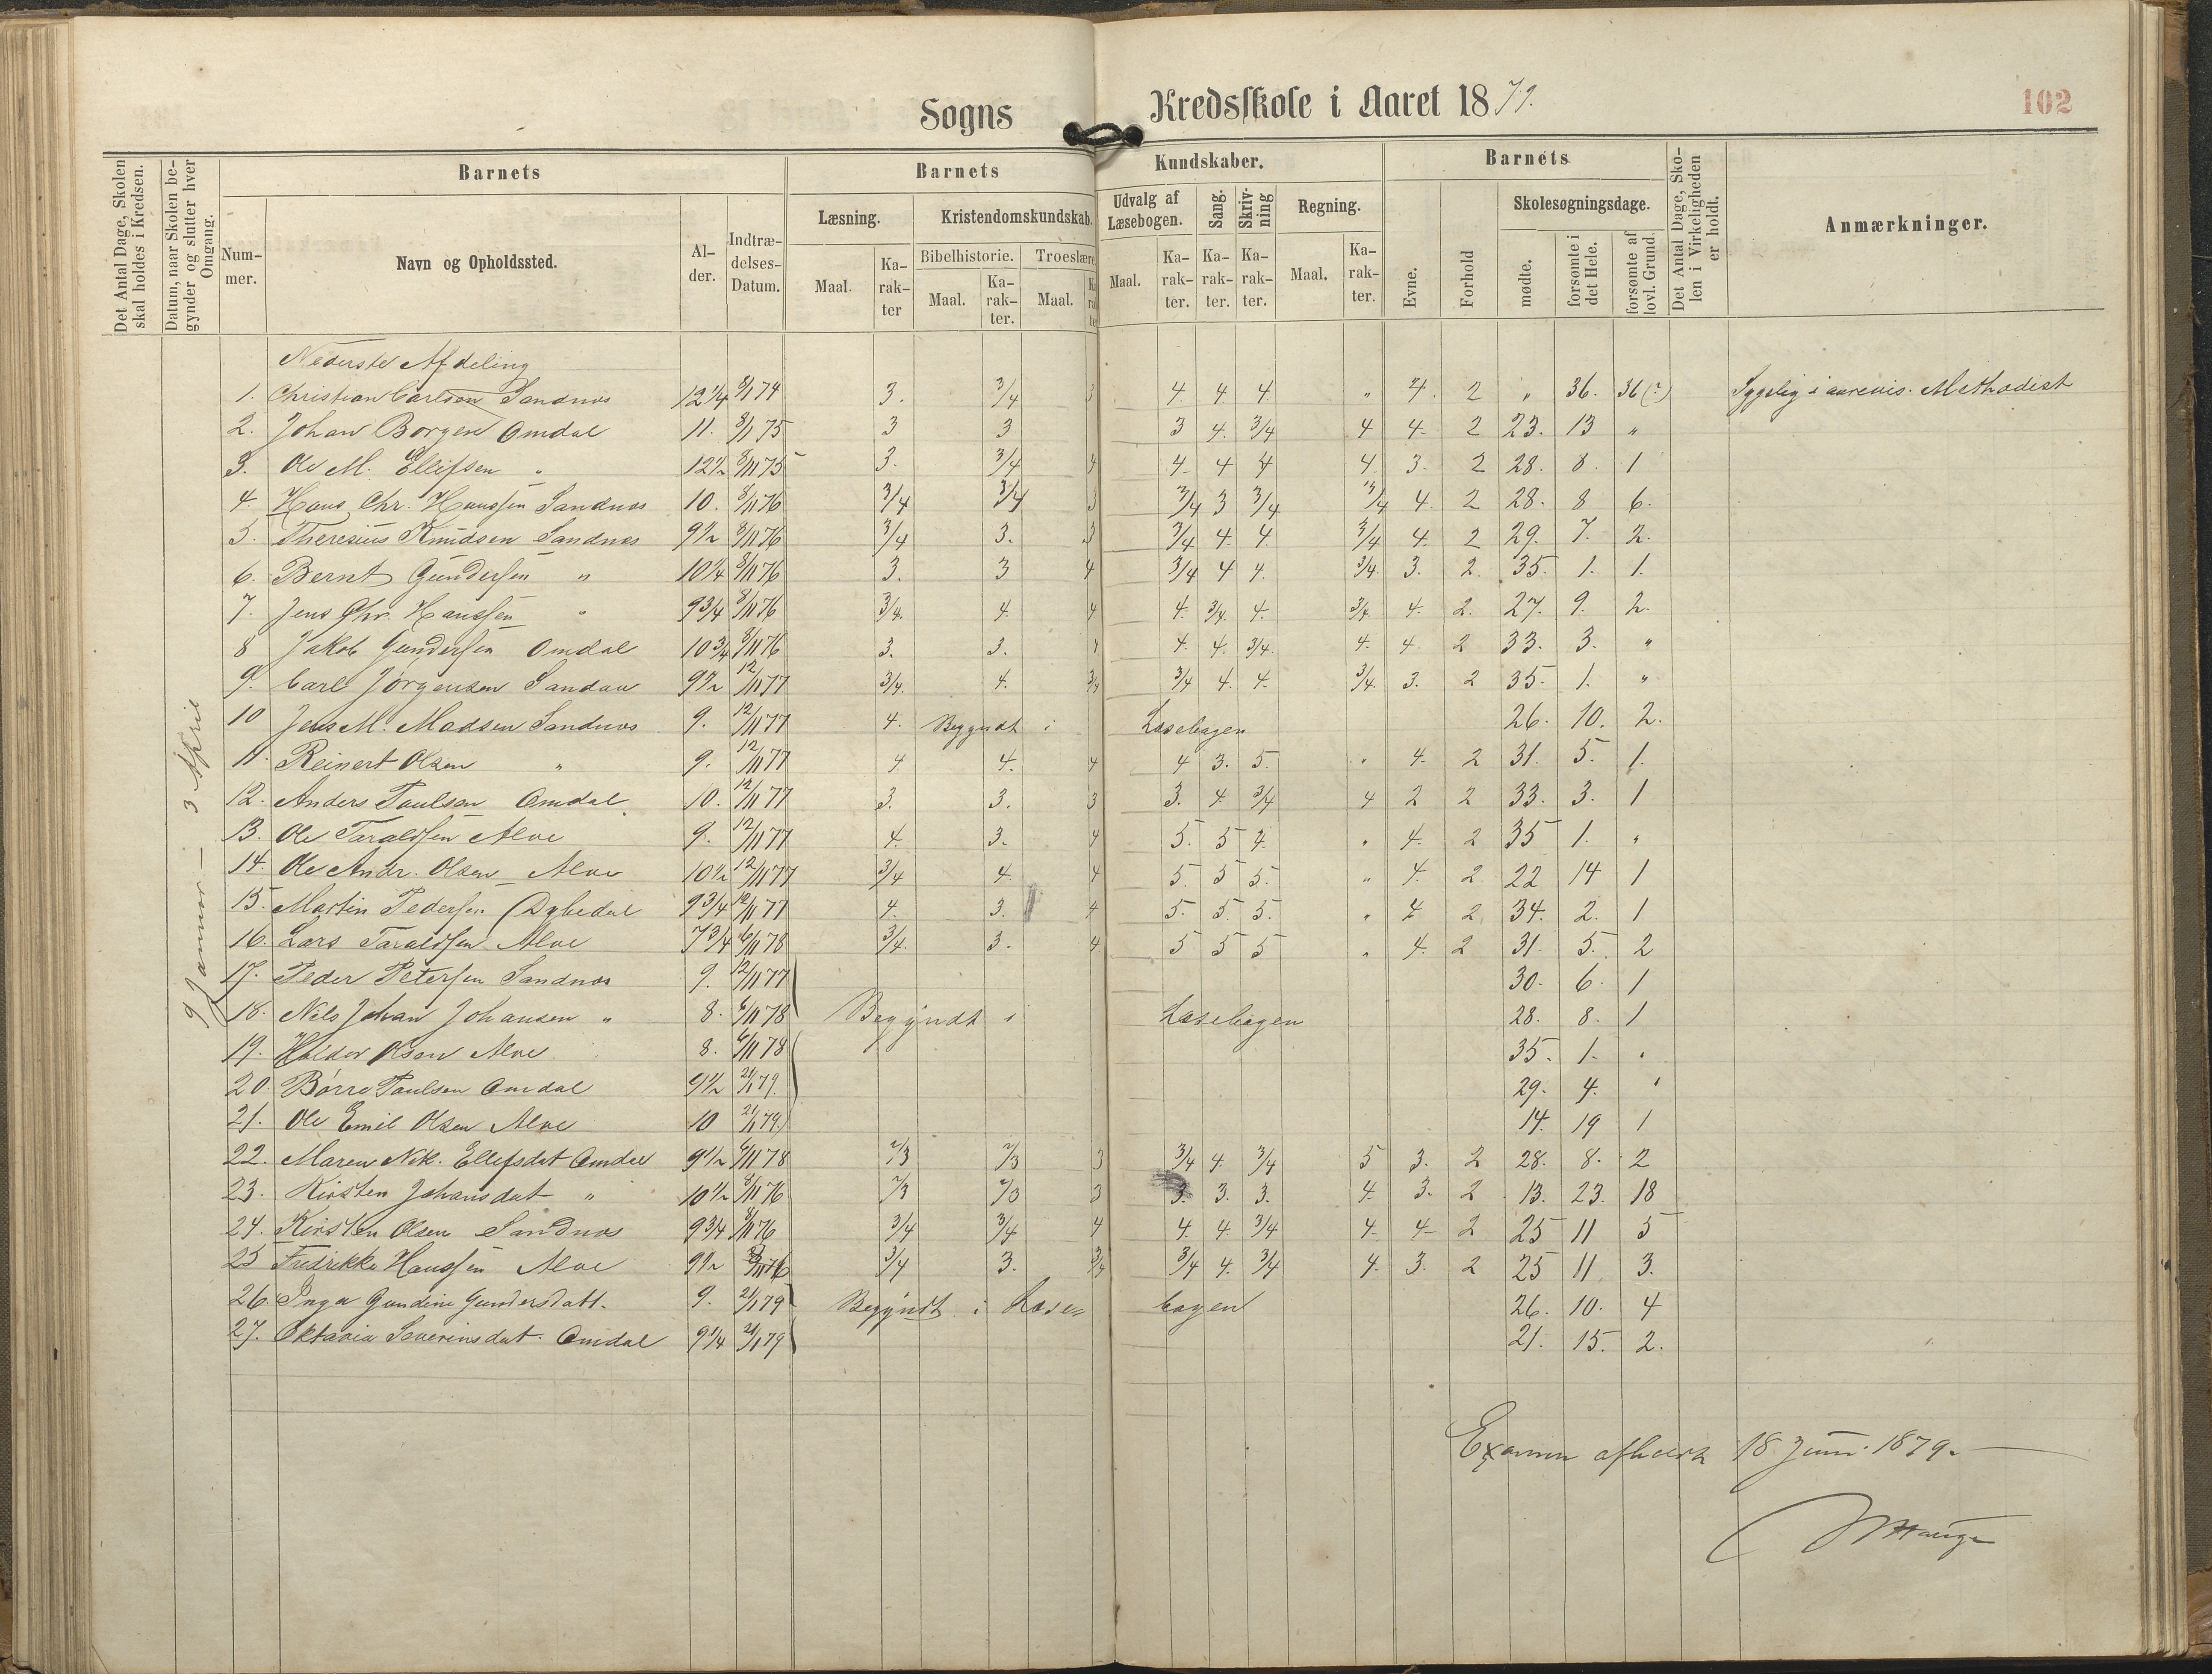 Sogns Kredsskole i Aaret 1879.
102
Det Antal Dage, Skolen skal holdes i Kredsen.
Datum, naar Skolen begynder og slutter hver Omgang.
Barnets
Barnets Kundskaber.
Barnets
Det Antal Dage, Skolen i Virkeligheden er holdt.
Anmærkninger.
Nummer.
Navn og Opholdssted.
Alder.
Indtrædelses-Datum.
Læsning.
Kristendomskundskab.
Udvalg af Læsebogen.
Sang.
Skrivning
Regning.
Evne.
Forhold
Skolesøgningsdage.
Bibelhistorie.
Troeslære
mødte.
forsømte i det Hele.
forsømte af lovl. Grund.
Maal. Karakter Maal. Karakter. Maal. Maal. Karakter. Karakter. Karakter. Maal. Karakter.
9 Januar – 3 April
Nederste Afdeling
1. Christian Carlsen Sandnæs 12 1/4 8/1 74 3. 3/4 3 4. 4 4. " 4. 2 " 36. 36(?) Sygelig i aarevis. Methodist
2. Johan Borgen Omdal 11. 8/1 75 3 3 3 4. 3/4 4 4. 2 23. 13 "
3. Ole M. Ellifsen " 12 1/2 8/11 75 3. 3/4 4 4 4 4 4. 3. 2 28. 8. 1
4. Hans Chr. Hanssen Sandnæs 10. 8/11 76 3/4 3/4 3 3/4 3 3/4 3/4 4. 2 28. 8 6.
5. Theresius Knudsen Sandnæs 9 1/2 8/11 76 3/4 3. 3 3/4 4. 4. 3/4 4. 2 29. 7. 2.
6. Bernt Gundersen " 10 1/4 8/11 76 3. 3 4 3/4 4 4. 3/4. 3. 2. 35. 1. 1.
7. Jens Chr. Hanssen " 9 3/4 8/11 76 3/4. 4. 4 4. 3/4. 4. 3/4. 4. 2. 27. 9. 2.
8 Jakob Gundersen Omdal 10 3/4 8/11 76 3. 3. 4 4. 4. 3/4. 4. 4. 2 33. 3. "
9. Carl Jørgensen Sandnæs 9 1/2 12/11 77 3/4. 4. 3/4 3/4 4. 4. 3/4. 3. 2 35. 1. "
10 Jens M. Madsen Sandnæs 9. 12/11 77 4. Begyndt i Læsebogen 26. 10. 2.
11. Reinert Olsen " 9. 12/11 77 4 4. 4 4 3. 5. " 4. 2 31. 5. 1.
12. Anders Paulsen Omdal 10. 12/11 77 3. 3. 3 3. 4 3/4 4 2 2 33. 3. 1
13. Ole Taraldsen Alve 9. 12/11 77 4. 3. 4 5. 5 4. " 4. 2 35 1. "
14. Ole Andr. Olsen Alve 10 1/2 12/11 77 3/4 4. 4 5. 5 5. " 4. 2 22 14 1
15. Martin Pedersen Dybedal 9 3/4 12/11 77 4. 3. 4 5. 5. 5. " 4 2 34. 2. 1
16. Lars Taraldsen Alve 7 3/4 6/11 78 3/4. 3. 4 5 5 5 " 4. 2 31. 5. 2
17. Peder Petersen Sandnæs 9. 12/11 77 30. 6. 1
18. Nils Johan Johansen " 8. 6/11 78 Begyndt i Læsebogen 28. 8. 1
19. Haldor Olsen Alve 8. 6/11 78 35. 1. "
20. Børre Paulsen Omdal 9 1/2 21/1 79. 29. 4. "
21. Ole Emil Olsen Alve 10 21/1 79. 14. 19 1
22. Maren Nik. Ellefsdat Omdal 9 1/2 6/11 78 2/3 2/3 3 3/4 4. 3/4 5 3. 2 28. 8. 2
23. Kirsten Johansdat " 10 1/2 8/11 76 2/3 2/3 3 3. 3. 3. 4. 3. 2 13. 23. 18
24. Kirsten Olsen Sandnæs 9 3/4 8/11 76 3/4 3/4 4 4. 4. 3/4 4. 4 2 25 11 5
25 Fredrikke Hanssen Alve 9 1/2 8/11 76 3/4 3. 3/4 3/4 4. 3/4 4. 3. 2 25 11 3.
26. Inga Gundine Gundersdatt. 9. 21/1 79 Begyndt i Læse- bogen 26. 10. 4
27. Oktavia Severinsdat. Omdal 9 1/4 21/1 79 21. 15. 2.
Examen afholdt 18 Juni 1879.
Hauge